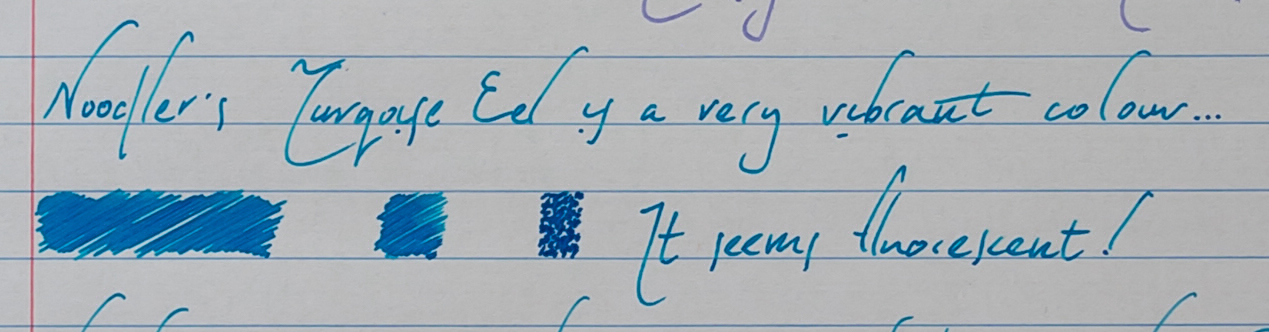 Noodler's Turqoise Eel is a very vibrant colour...
It seems fluorescent!